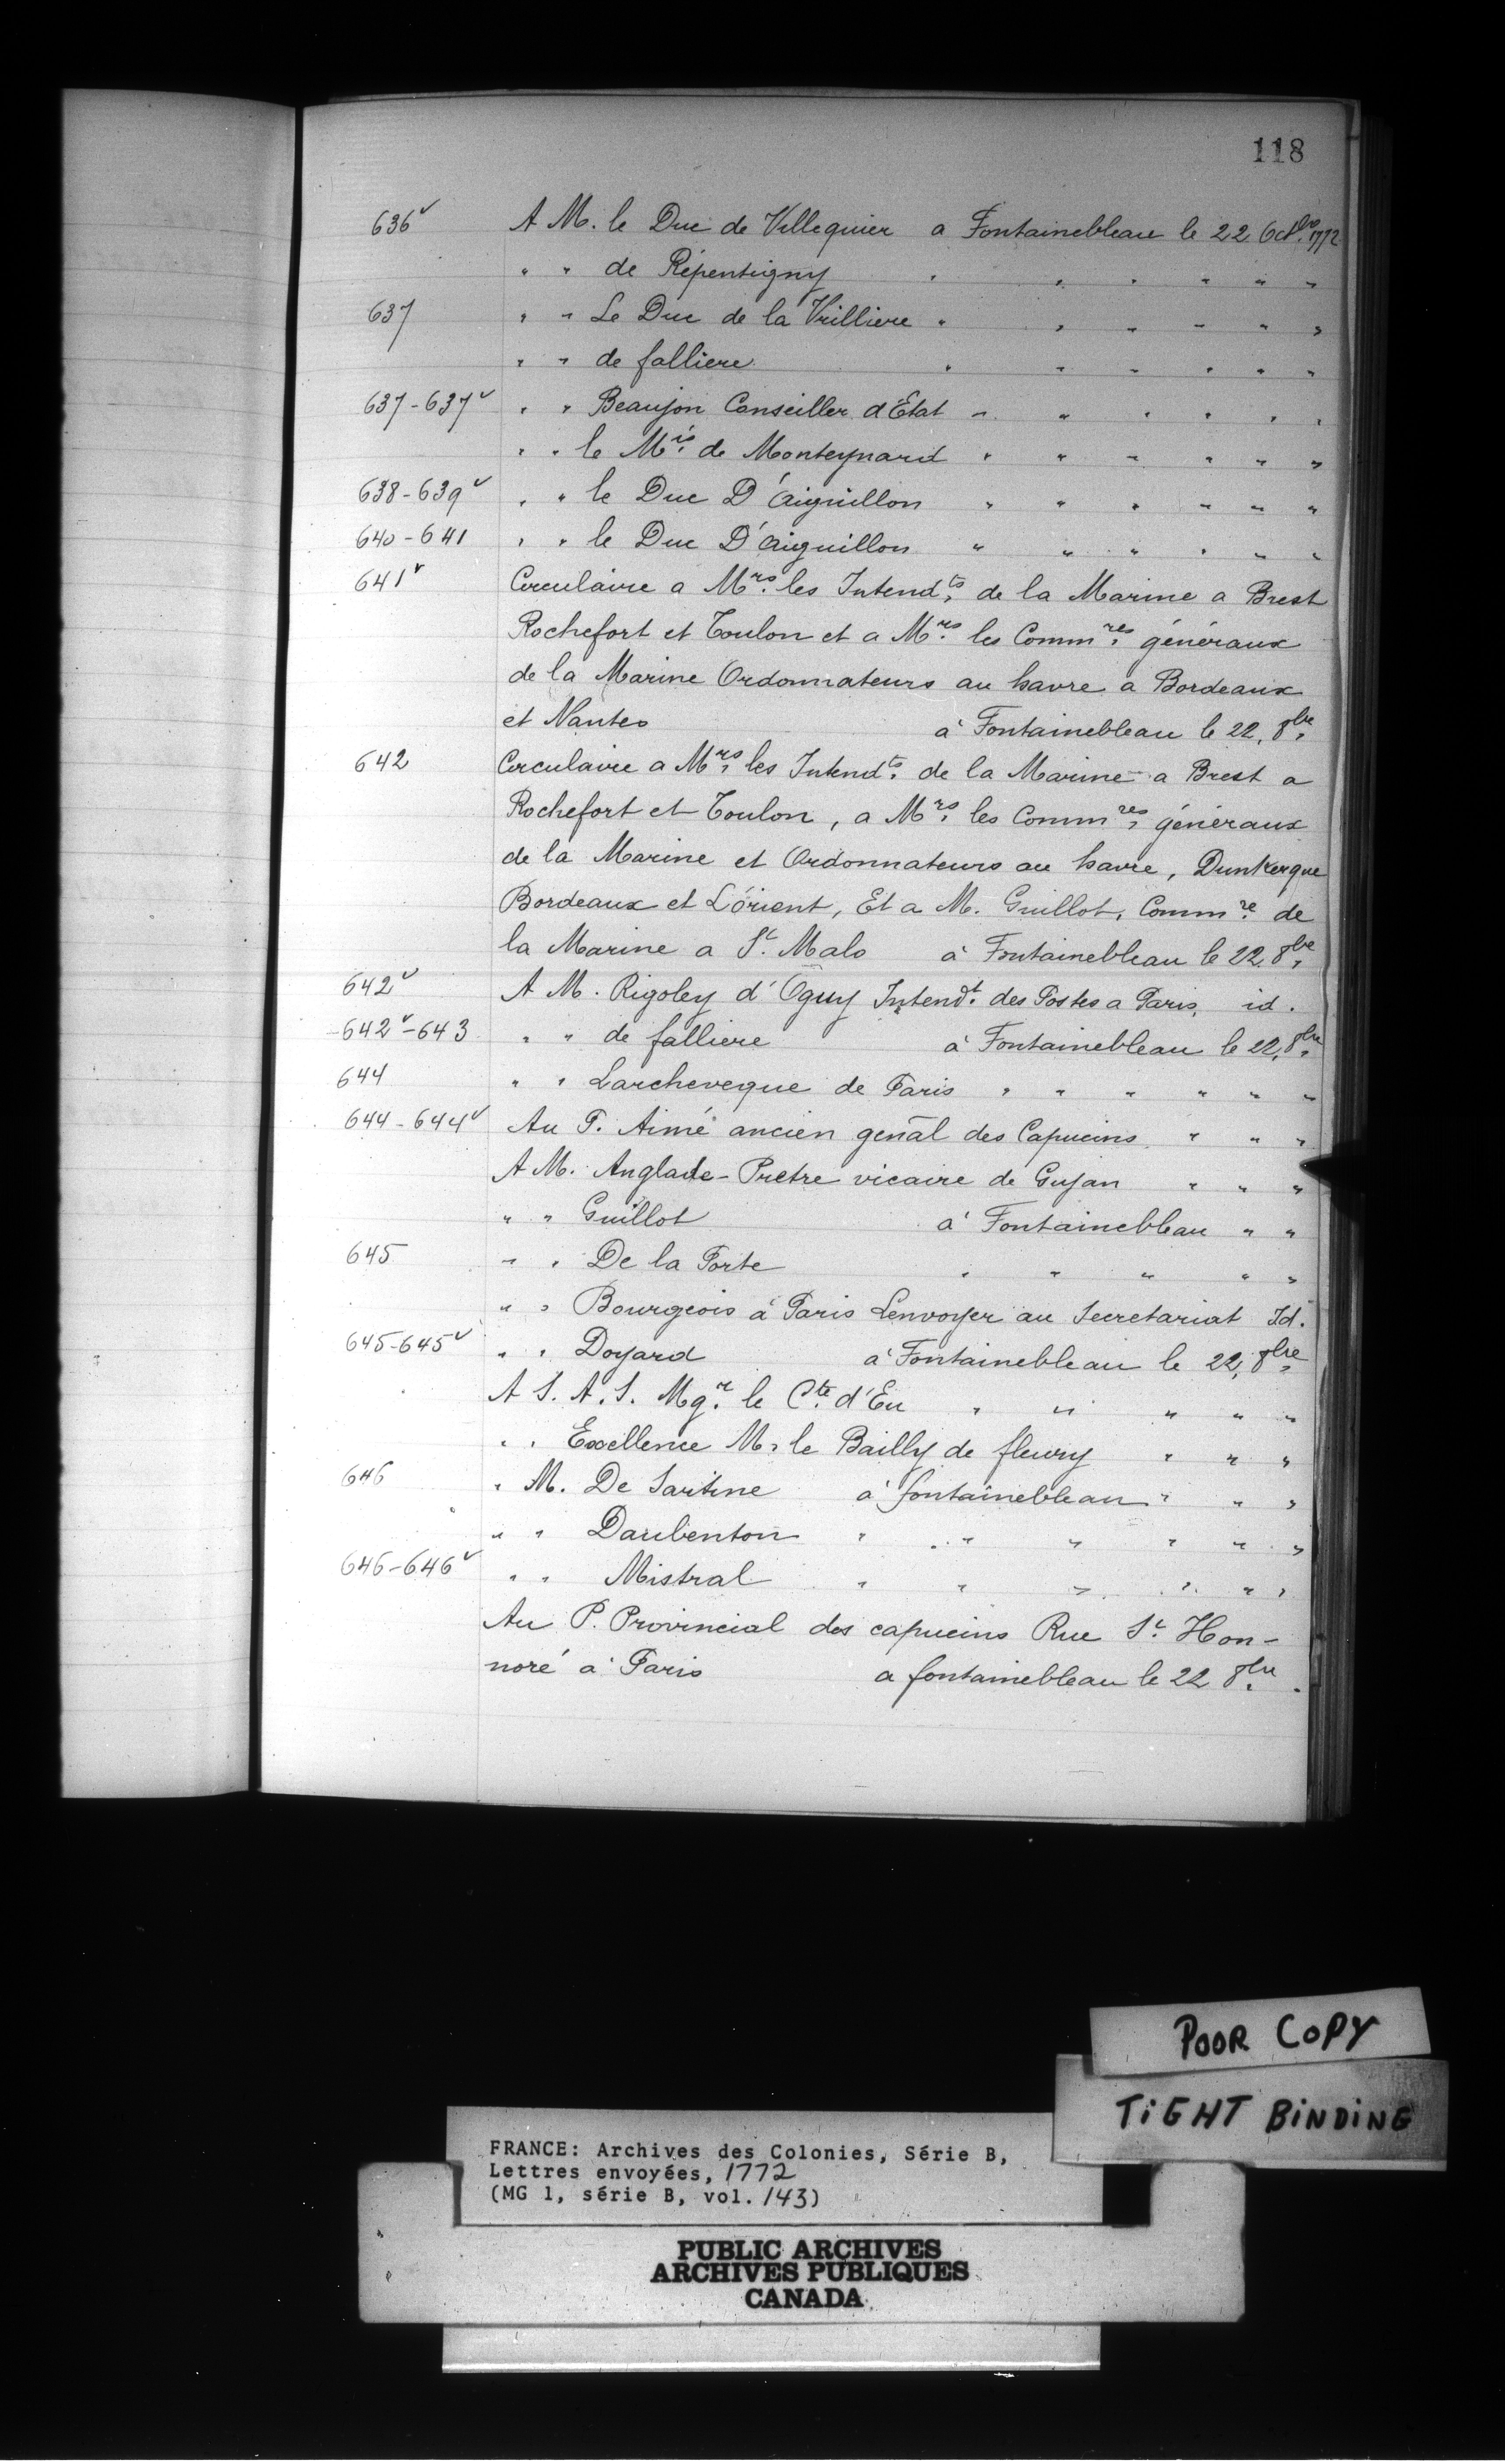 118
636v A M. le Duc de Villequier a Fontainebleau le 22 Octbre 1772
" " de Répentigny " " " " " "
637 " " Le Duc de la Vrilliere " " " " " "
" " de falliere " " " " " "
637-637v " " Beaujon Conseiller d'État " " " " " "
" " le Mis. de Monteynard " " " " " "
638-639v " " le Duc D'aiguillon " " " " " "
640-641 " " le Duc D'aiguillon " " " " " "
641v Circulaire a Mrs. les Intendts. de la Marine a Brest
Rochefort et Toulon et a Mrs. les Commres. généraux
de la Marine Ordonnateurs au havre a Bordeaux
et Nantes à Fontainebleau le 22, 8bre.
642 Circulaire a Mrs. les Intendts. de la Marine a Brest a
Rochefort et Toulon, a Mrs. les Commres. généraux
de la Marine et Ordonnateurs au havre, Dunkerque
Bordeaux et L'órient, Et a M. Guillot, Commre. de
la Marine a St. Malo à Fontainebleau le 22, 8bre.
642v A M. Rigoley d'Oguy Intendt. des Postes a Paris, id.
642v-643 " " de falliere à Fontainebleau le 22, 8bre.
644 " " Larcheveque de Paris " " " " " "
644-644v Au P. Aimé ancien genāl des Capucins " " "
A M. Anglade-Pretre vicaire de Gujan " " "
" " Guillot à Fontainebleau " "
645 " " De la Porte " " " " "
" " Bourgeois à Paris Lenvoyer au Secretariat Id.
645-645v " " Doyard à Fontainebleau le 22, 8bre.
A S. A. S. Mgr. le Cte. d'Eu " " " " "
" " Excellence M. le Bailly de fleury " " "
646 " M. De Sartine à fontainebleau " " "
" " Daubenton " " " " " "
646-646v " " Mistral " " " " " "
Au P. Provincial des capucins Rue St. Hon-
noré à Paris a fontainebleau le 22 8bre.
POOR COPY
TIGHT BINDING
FRANCE: Archives des Colonies, Série B,
Lettres envoyées, 1772
(MG 1, série B, vol. 143)
PUBLIC ARCHIVES
ARCHIVES PUBLIQUES
CANADA